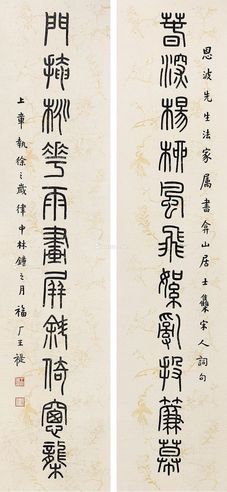 恩波先生法家属書弇山居士集宋人詞句
春深楊柳風飛絮亂投簾幕
門掩桃華雨畫屏斜倚窗
上章執徐之歲律中林鐘之月福厂王禔